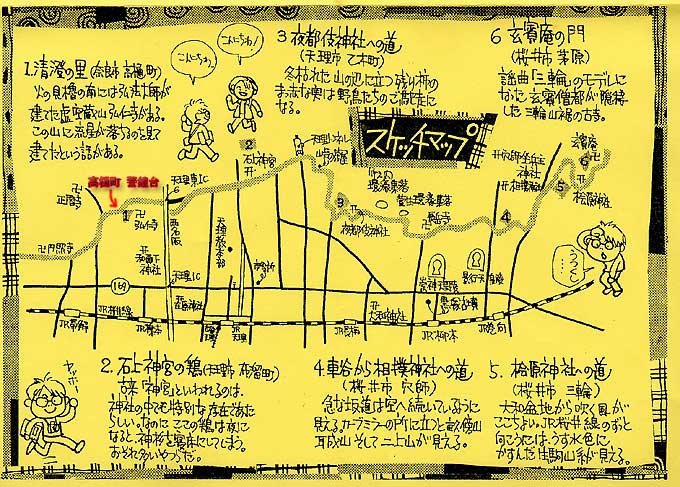 1.清澄の里(奈良市 高樋町)
火の見櫓の南には弘法大師が
建てた虚空蔵山弘仁寺がある。
この山に流星が落ちるのを見て
建てたという話がある。
こんにちわ。
こんにちわ!
3 夜都伎神社への道
(天理市 乙木町)
冬枯れた山の辺に立つ残り柿の
まっ赤な実は野鳥たちのご馳走に
なる。
6 玄賓庵の門
(桜井市 茅原)
謡曲「三輪」のモデルに
なった玄賓僧都が隠棲
した三輪山裾の古寺。
スケッチマップ
高樋町
正暦寺
円照寺
1
弘仁寺
和爾下神社
天理東IC
西名阪
天理IC
2
石上神宮
天理教本部
天理トンネル
3
夜都伎神社
竹之内環濠集落
萱生環濠集落
崇神天皇陵
景行天皇陵
黒塚古墳
大和神社
相撲神社
4
5
檜原神社
玄賓庵
6
169
JR帯解
JR桜井線
JR櫟本
JR天理
JR長柄
JR柳本
JR巻向
ヤッホー
2.石上神宮の鶏(天理市 布留町)
古来「神宮」といわれるのは、
神社の中でも特別な存在であた
らしい。なのに ここの鶏は夜に
なると、神杉を寝床にしてしまう。
おそれ多いやつだ。
4.車谷から相撲神社への道
(桜井市 穴師)
急な坂道は空へ続いているように
見える。カーブミラーの所に立つと畝傍山
耳成山 そして二上山が見える。
5.桧原神社への道
(桜井市 三輪)
大和盆地から吹く風が
ここちよい。JR桜井線のずっと
向こうには、うす水色に
かすんだ生駒山系が見える。